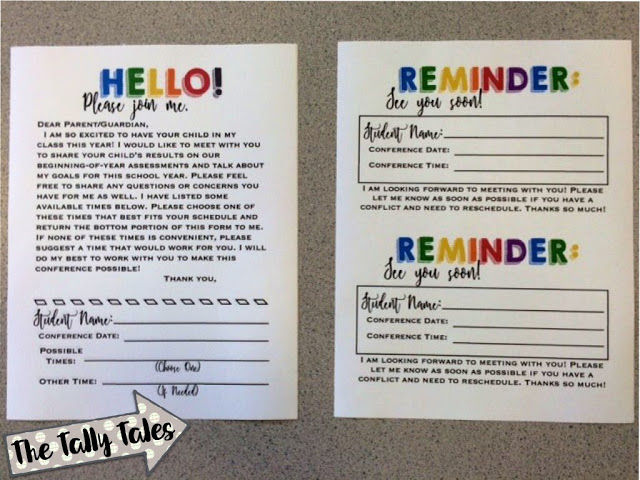 HELLO!
Please join me.
DEAR PARENT/GUARDIAN,
I AM SO EXCITED TO HAVE YOUR CHILD IN MY
CLASS THIS YEAR! I WOULD LIKE TO MEET WITH YOU
TO SHARE YOUR CHILD'S RESULTS ON OUR
BEGINNING-OF-YEAR ASSESSMENTS AND TALK ABOUT
MY GOALS FOR THIS SCHOOL YEAR. PLEASE FEEL
FREE TO SHARE ANY QUESTIONS OR CONCERNS YOU
HAVE FOR ME AS WELL. I HAVE LISTED SOME
AVAILABLE TIMES BELOW. PLEASE CHOOSE ONE OF
THESE TIMES THAT BEST FITS YOUR SCHEDULE AND
RETURN THE BOTTOM PORTION OF THIS FORM TO ME.
IF NONE OF THESE TIMES IS CONVENIENT, PLEASE
SUGGEST A TIME THAT WOULD WORK FOR YOU. I WILL
DO MY BEST TO WORK WITH YOU TO MAKE THIS
CONFERENCE POSSIBLE!
THANK YOU,
Student Name:
CONFERENCE DATE:
POSSIBLE
TIMES:
(Choose One)
OTHER TIME:
(If Needed)
REMINDER:
See you soon!
Student Name:
CONFERENCE DATE:
CONFERENCE TIME:
I AM LOOKING FORWARD TO MEETING WITH YOU! PLEASE
LET ME KNOW AS SOON AS POSSIBLE IF YOU HAVE A
CONFLICT AND NEED TO RESCHEDULE. THANKS SO MUCH!
REMINDER:
See you soon!
Student Name:
CONFERENCE DATE:
CONFERENCE TIME:
I AM LOOKING FORWARD TO MEETING WITH YOU! PLEASE
LET ME KNOW AS SOON AS POSSIBLE IF YOU HAVE A
CONFLICT AND NEED TO RESCHEDULE. THANKS SO MUCH!
The Tally Tales